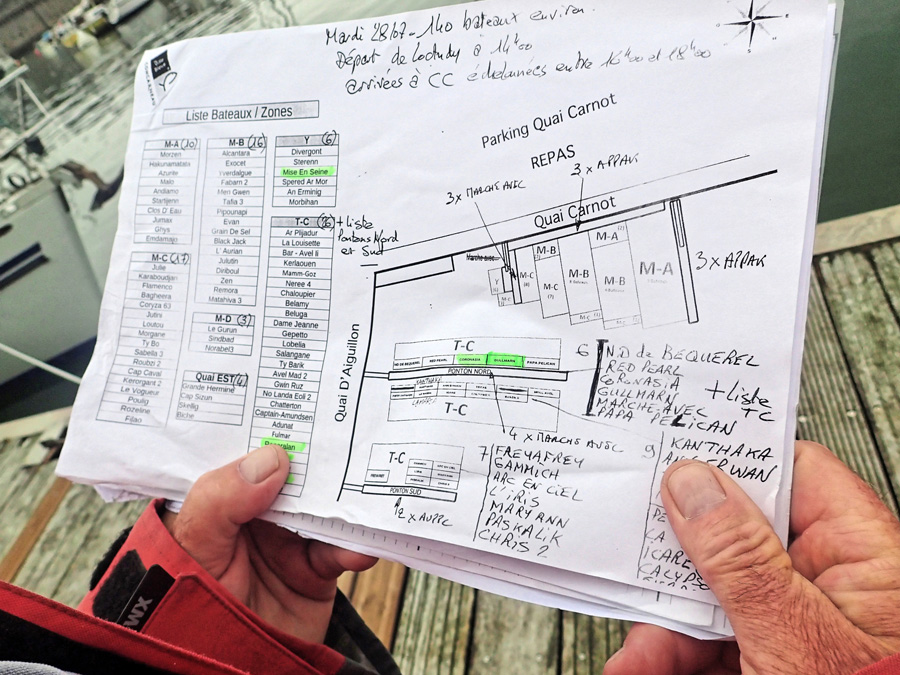 Mardi 28/07 - 140 bateaux environ.
Départ de Loctudy à 14h00
arrivées à CC échelonnées entre 16h00 et 18h00
Liste Bateaux / Zones
M-A (10)
Morzen
Hakunamatata
Azurite
Malo
Andiamo
Startijenn
Clos D' Eau
Jumax
Ghys
Emdamajo
M-C (17)
Julie
Karaboudjan
Flamenco
Bagheera
Coryza 63
Jutini
Loutou
Morgane
Ty Bo
Sabella 3
Roubzi 2
Cap Caval
Kerorgant 2
Le Vogueur
Poulig
Rozeline
Fijao
M-B (16)
Alcantara
Exocet
Yverdalgue
Fabarn 2
Men Gwen
Tafia 3
Pipounapi
Evan
Grain De Sel
Black Jack
L' Aurian
Julutin
Diriboul
Zen
Remora
Matahiva 3
M-D (3)
Le Gurun
Sindbad
Norabel3
Quai EST (4)
Grande Hermine
Cap Sizun
Skellig
Biche
Y (6)
Divergont
Sterenn
Mise En Seine
Spered Ar Mor
An Erminig
Morbihan
T-C
+ liste
Pontons Nord
et Sud
Ar Plijadur
La Louisette
Bar - Avel Ii
Kerlaouen
Mamm-Goz
Neree 4
Chaloupier
Belamy
Beluga
Dame Jeanne
Gepetto
Lobelia
Salangane
Ty Barik
Avel Mad 2
Gwin Ruz
No Landa Eoli 2
Chatterton
Captain-Amundsen
Adunat
Fulmar
Parking Quai Carnot
REPAS
3 x MARCHE AVEC
3 x APPAK
Quai Carnot
Marche avec
Y
M-C
M-C
M-B
M-B
M-A
M-B
M-A
3 x APPAK
Quai D'Aiguillon
T-C
RED PEARL
CORONASIA
GULLMARN
PAPA PELICAN
PONTON NORD
T-C
4 x MARCHE AVEC
T-C
PONTON SUD
6
N.D de BEQUEREL
RED PEARL
CORONASIA
GULLMARN
MARCHE AVEC
PAPA PELICAN
+ liste
TC
7
FREYAFREY
GAMMICH
ARC EN CIEL
L'IRIS
MARY ANN
PASKALIK
CHRIS 2
9
KANTHAKA
ICARE
CALYPSO